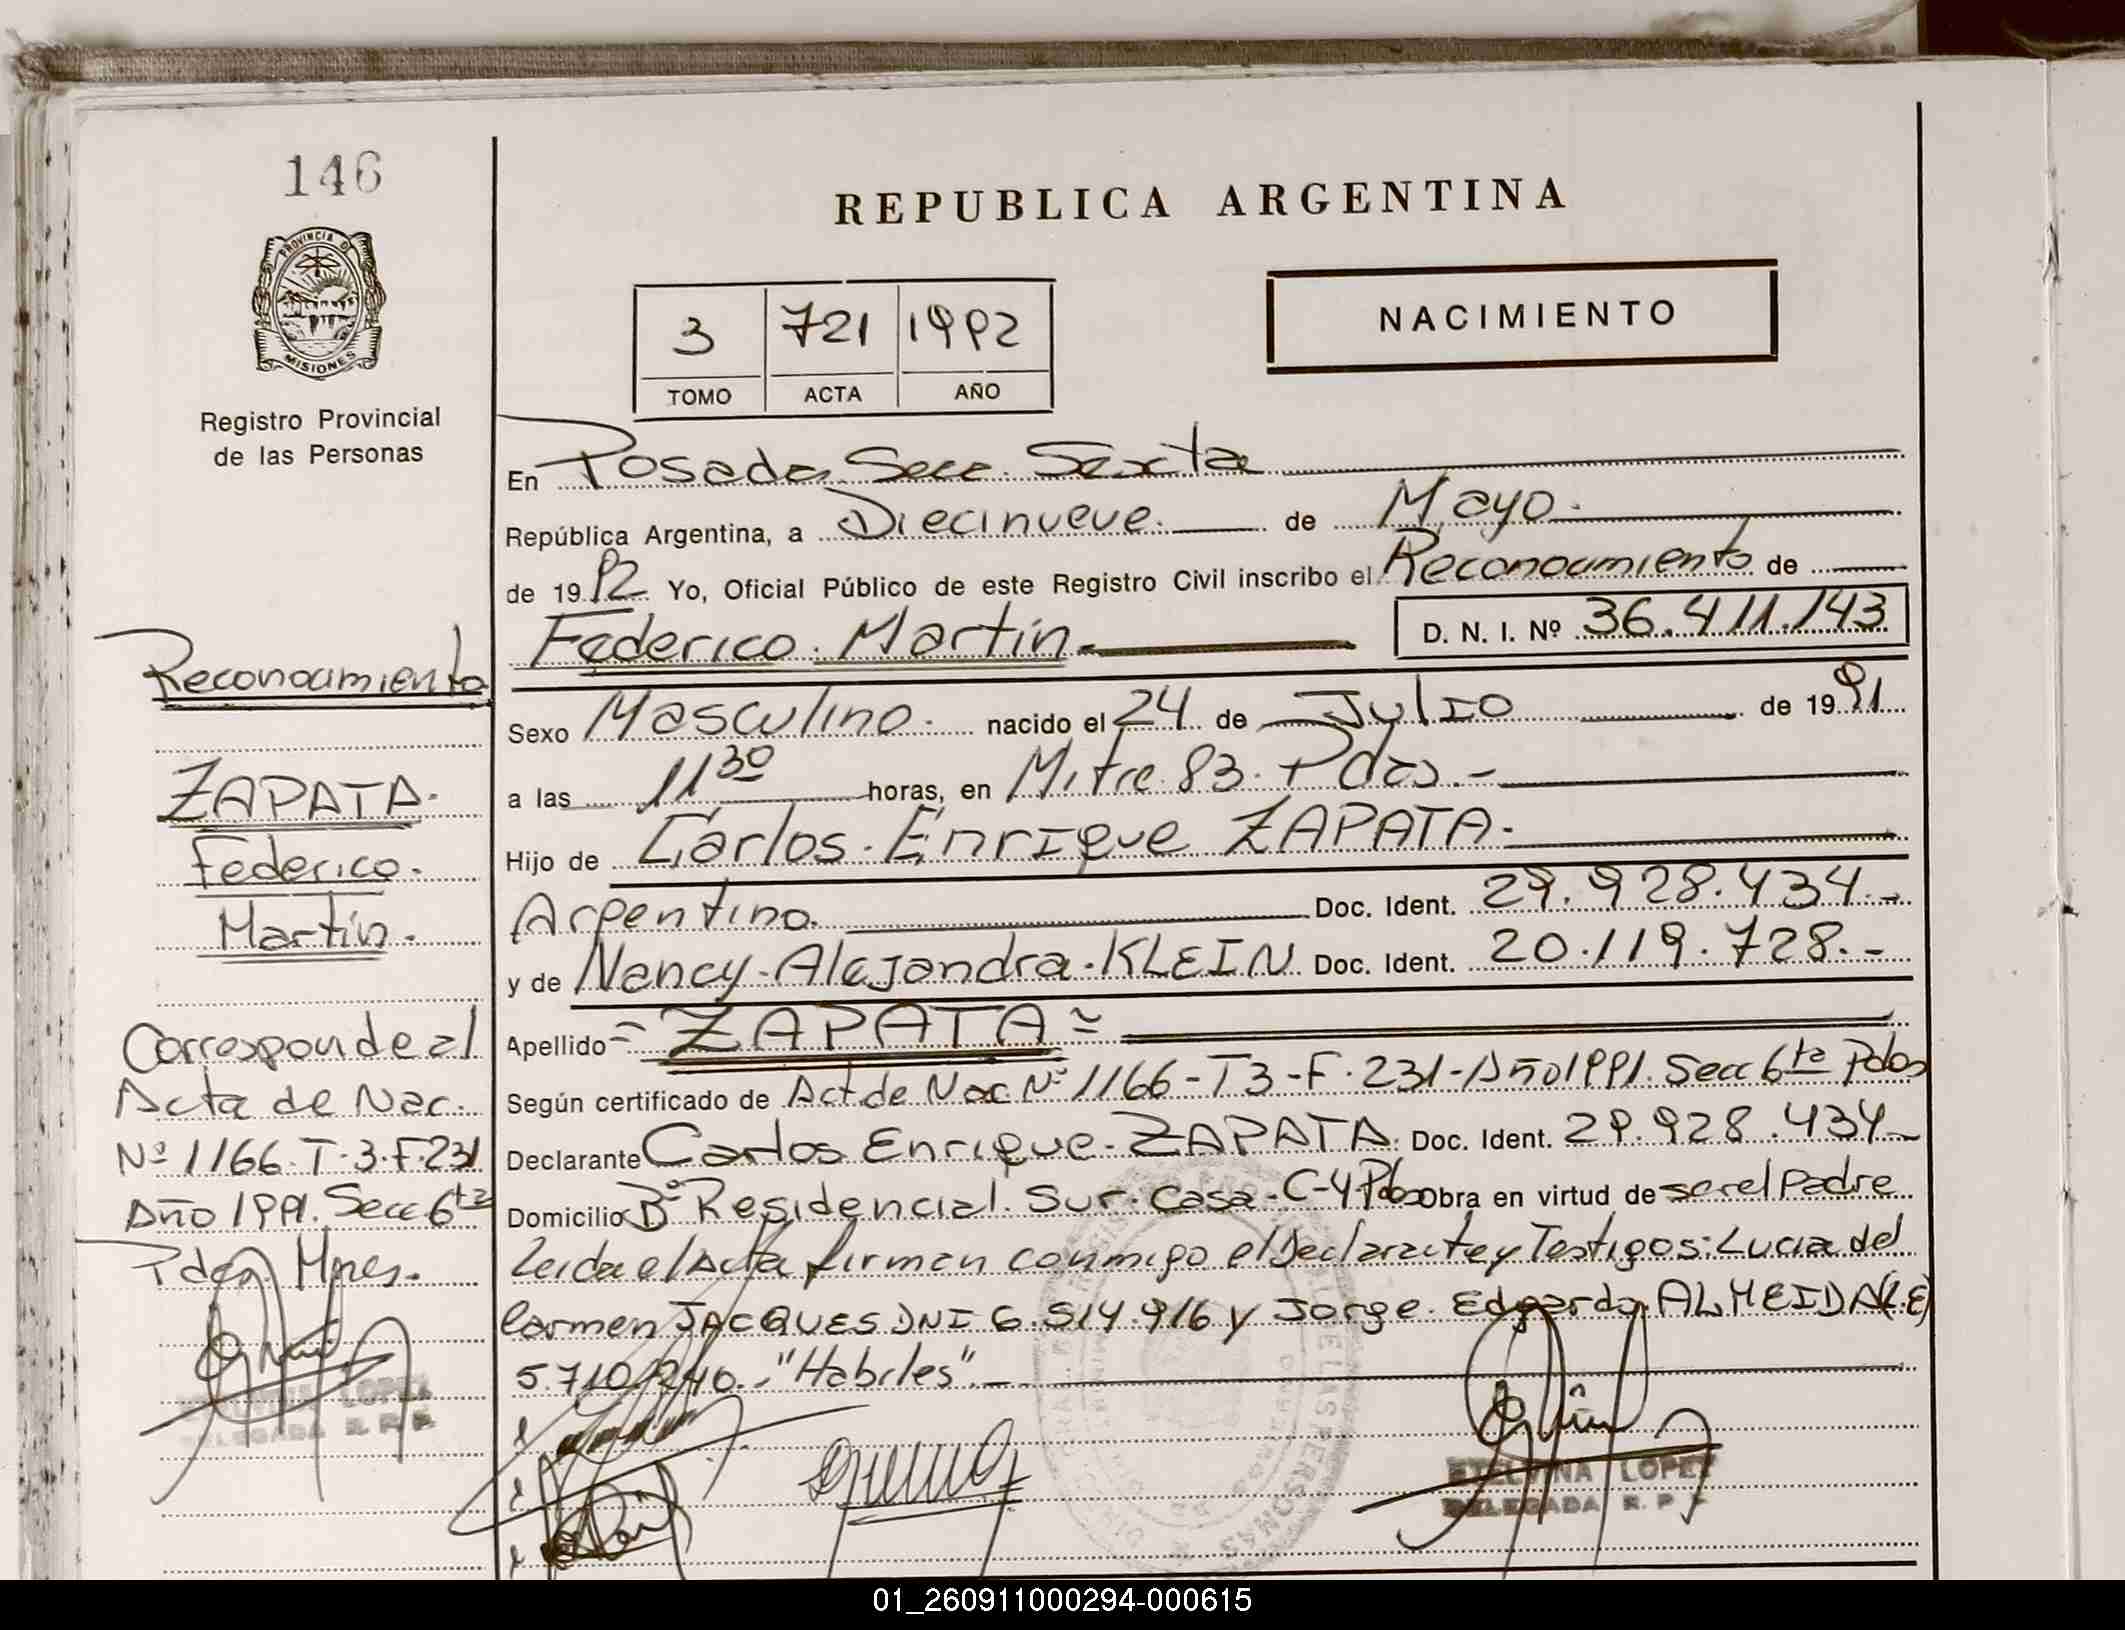 146
PROVINCIA DE
MISIONES
Registro Provincial
de las Personas
REPUBLICA ARGENTINA
3 721 1992
TOMO ACTA AÑO
NACIMIENTO
En Posadas Secc. Sexta
República Argentina, a Diecinueve. de Mayo.
de 1992 Yo, Oficial Público de este Registro Civil inscribo el Reconocimiento de
Federico. Martín. D. N. I. Nº 36.411.143
Sexo Masculino. nacido el 24 de Julio de 1991
a las 11 30 horas, en Mitre 83. Pdas.-
Hijo de Carlos. Enrique ZAPATA.
Argentino. Doc. Ident. 29.928.434.-
y de Nancy. Alejandra. KLEIN Doc. Ident. 20.119.728.-
Apellido = ZAPATA =
Según certificado de Act. de Nac. Nº 1166-T3-F.231-Año 1991. Secc 6ta Pdas
Declarante Carlos Enrique. ZAPATA. Doc. Ident. 29.928.434-
Domicilio Bº Residencial. Sur. Casa-C-4-Pdas Obra en virtud de ser el Padre
Leida el Acta firman conmigo el Declarante y Testigos: Lucia del
Carmen JACQUES DNI 6.514.916 y Jorge. Edgardo. ALMEIDA (LE)
5.710.240. "Habiles".-
ETELVINA LOPEZ
DELEGADA R. P. P.
Reconocimiento
ZAPATA.
Federico.
Martín.
Corresponde al
Acta de Nac.
Nº 1166-T-3-F.231
Año 1991. Secc 6ta
Pdas Mnes.
ETELVINA LOPEZ
DELEGADA R. P. P.
01_260911000294-000615